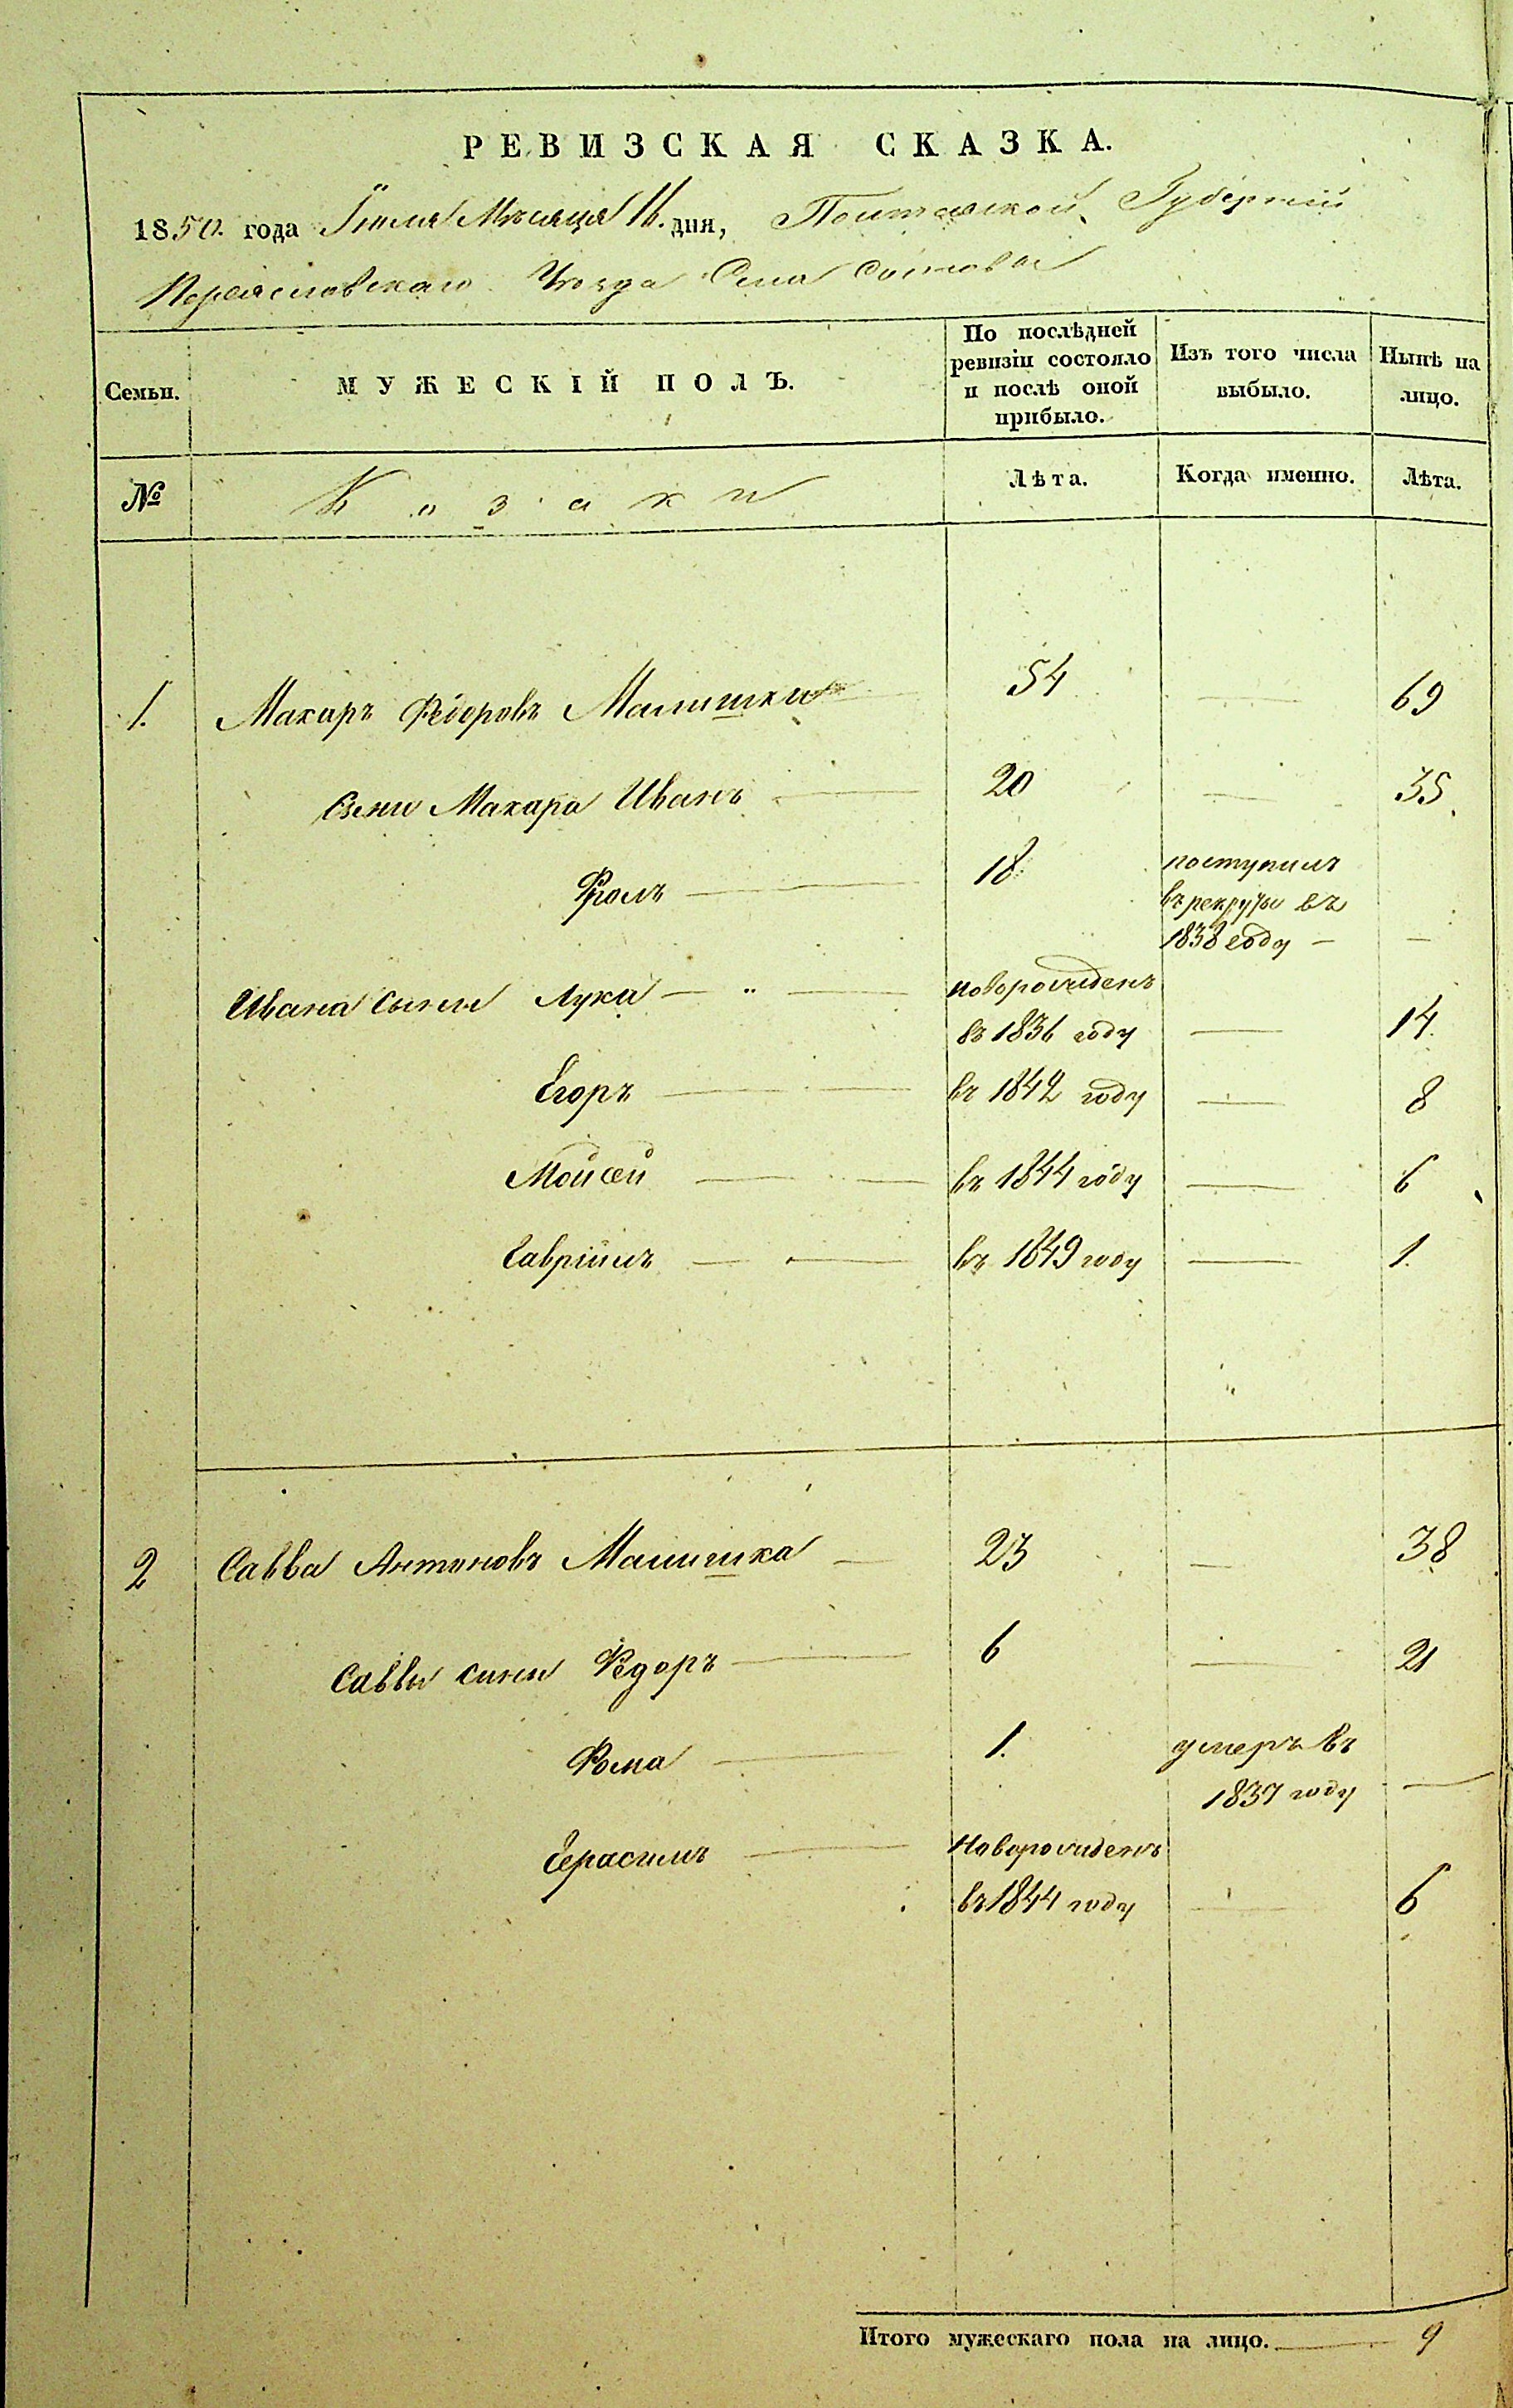 РЕВИЗСКАЯ СКАЗКА.
1850. года Іюля Мѣсяца 16. дня, Полтавской Губерніи
Переяславскаго Уѣзда Села Сошкова
Семьи.
МУЖЕСКІЙ ПОЛЪ.
По послѣдней ревизіи состояло и послѣ оной прибыло.
Изъ того числа выбыло.
Нынѣ на лицо.
№
Козаки
Лѣта.
Когда именно.
Лѣта.
1. Макаръ Федоровъ Малишка 54 — 69
Сыни Макара Иванъ — 20 — 35.
Фролъ — 18 поступилъ
въ рекруты въ
1838 году — —
Ивана сыни Лука — новорожденъ
въ 1836 году — 14.
Егоръ — въ 1842 году — 8
Мойсей — въ 1844 году — 6
Гавріилъ — въ 1849 году — 1.
2 Савва Антоновъ Малишка — 23 — 38
Саввы сини Федоръ — 6 — 21
Фома — 1. умеръ въ
1837 году —
Герасимъ — Новорожденъ
въ 1844 году — 6
Итого мужескаго пола на лицо. — 9